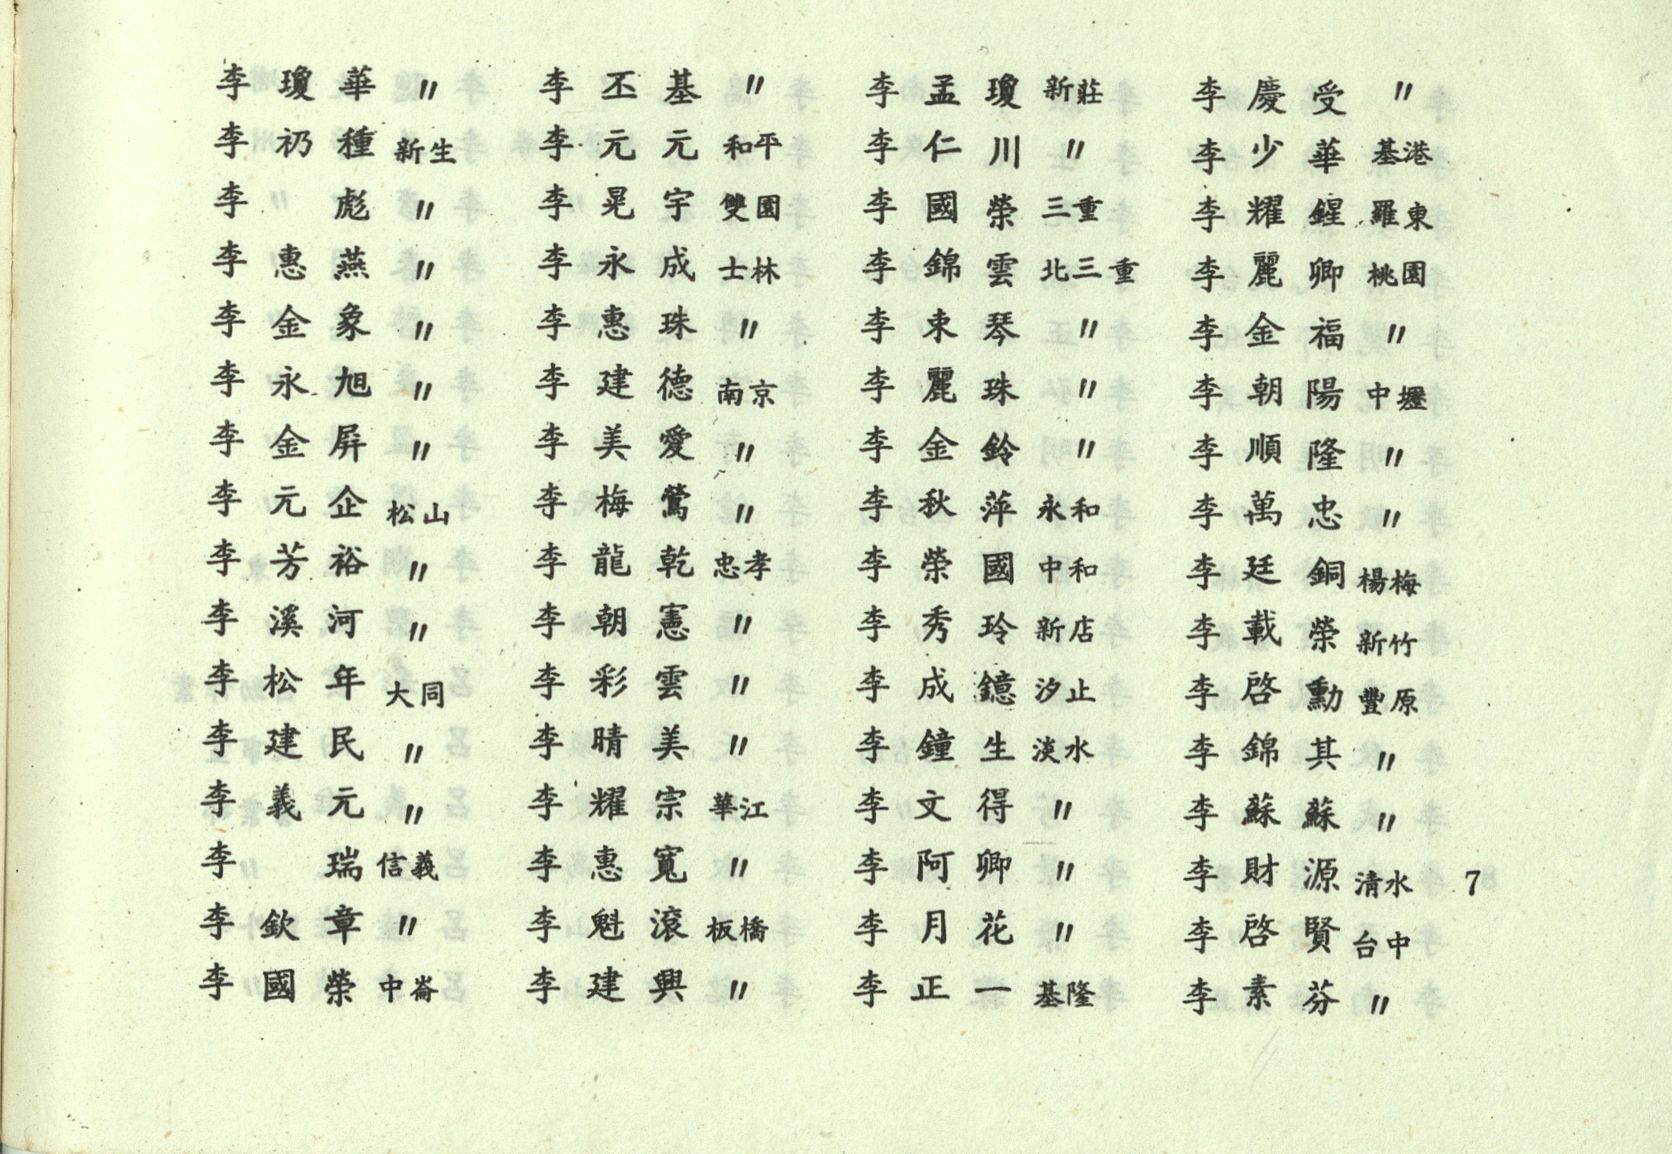 李瓊華 〃
李礽種 新生
李 彪 〃
李惠燕 〃
李金象 〃
李永旭 〃
李金屏 〃
李元企 松山
李芳裕 〃
李溪河 〃
李松年 大同
李建民 〃
李義元 〃
李 瑞 信義
李欽章 〃
李國榮 中崙
李丕基 〃
李元元 和平
李晃宇 雙園
李永成 士林
李惠珠 〃
李建德 南京
李美愛 〃
李梅鶯 〃
李龍乾 忠孝
李朝憲 〃
李彩雲 〃
李晴美 〃
李耀宗 華江
李惠寬 〃
李魁滾 板橋
李建興 〃
李孟瓊 新莊
李仁川 〃
李國榮 三重
李錦雲 北三重
李束琴 〃
李麗珠 〃
李金鈴 〃
李秋萍 永和
李榮國 中和
李秀玲 新店
李成鐿 汐止
李鐘生 淡水
李文得 〃
李阿卿 〃
李月花 〃
李正一 基隆
李慶受 〃
李少華 基港
李耀鍟 羅東
李麗卿 桃園
李金福 〃
李朝陽 中壢
李順隆 〃
李萬忠 〃
李廷銅 楊梅
李載榮 新竹
李啓勳 豐原
李錦其 〃
李蘇蘇 〃
李財源 清水
李啓賢 台中
李素芬 〃
7